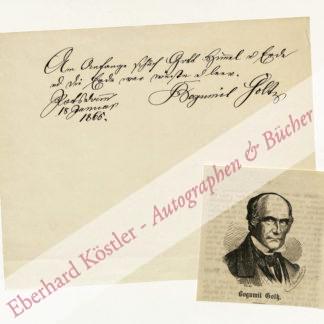 Am Anfange schuf Gott Himmel u Erde
ud die Erde war wüste u leer.
Potsdam
18 Januar
1866.
Bogumil Goltz
Eberhard Köstler - Autographen & Bücher
Bogumil Goltz.